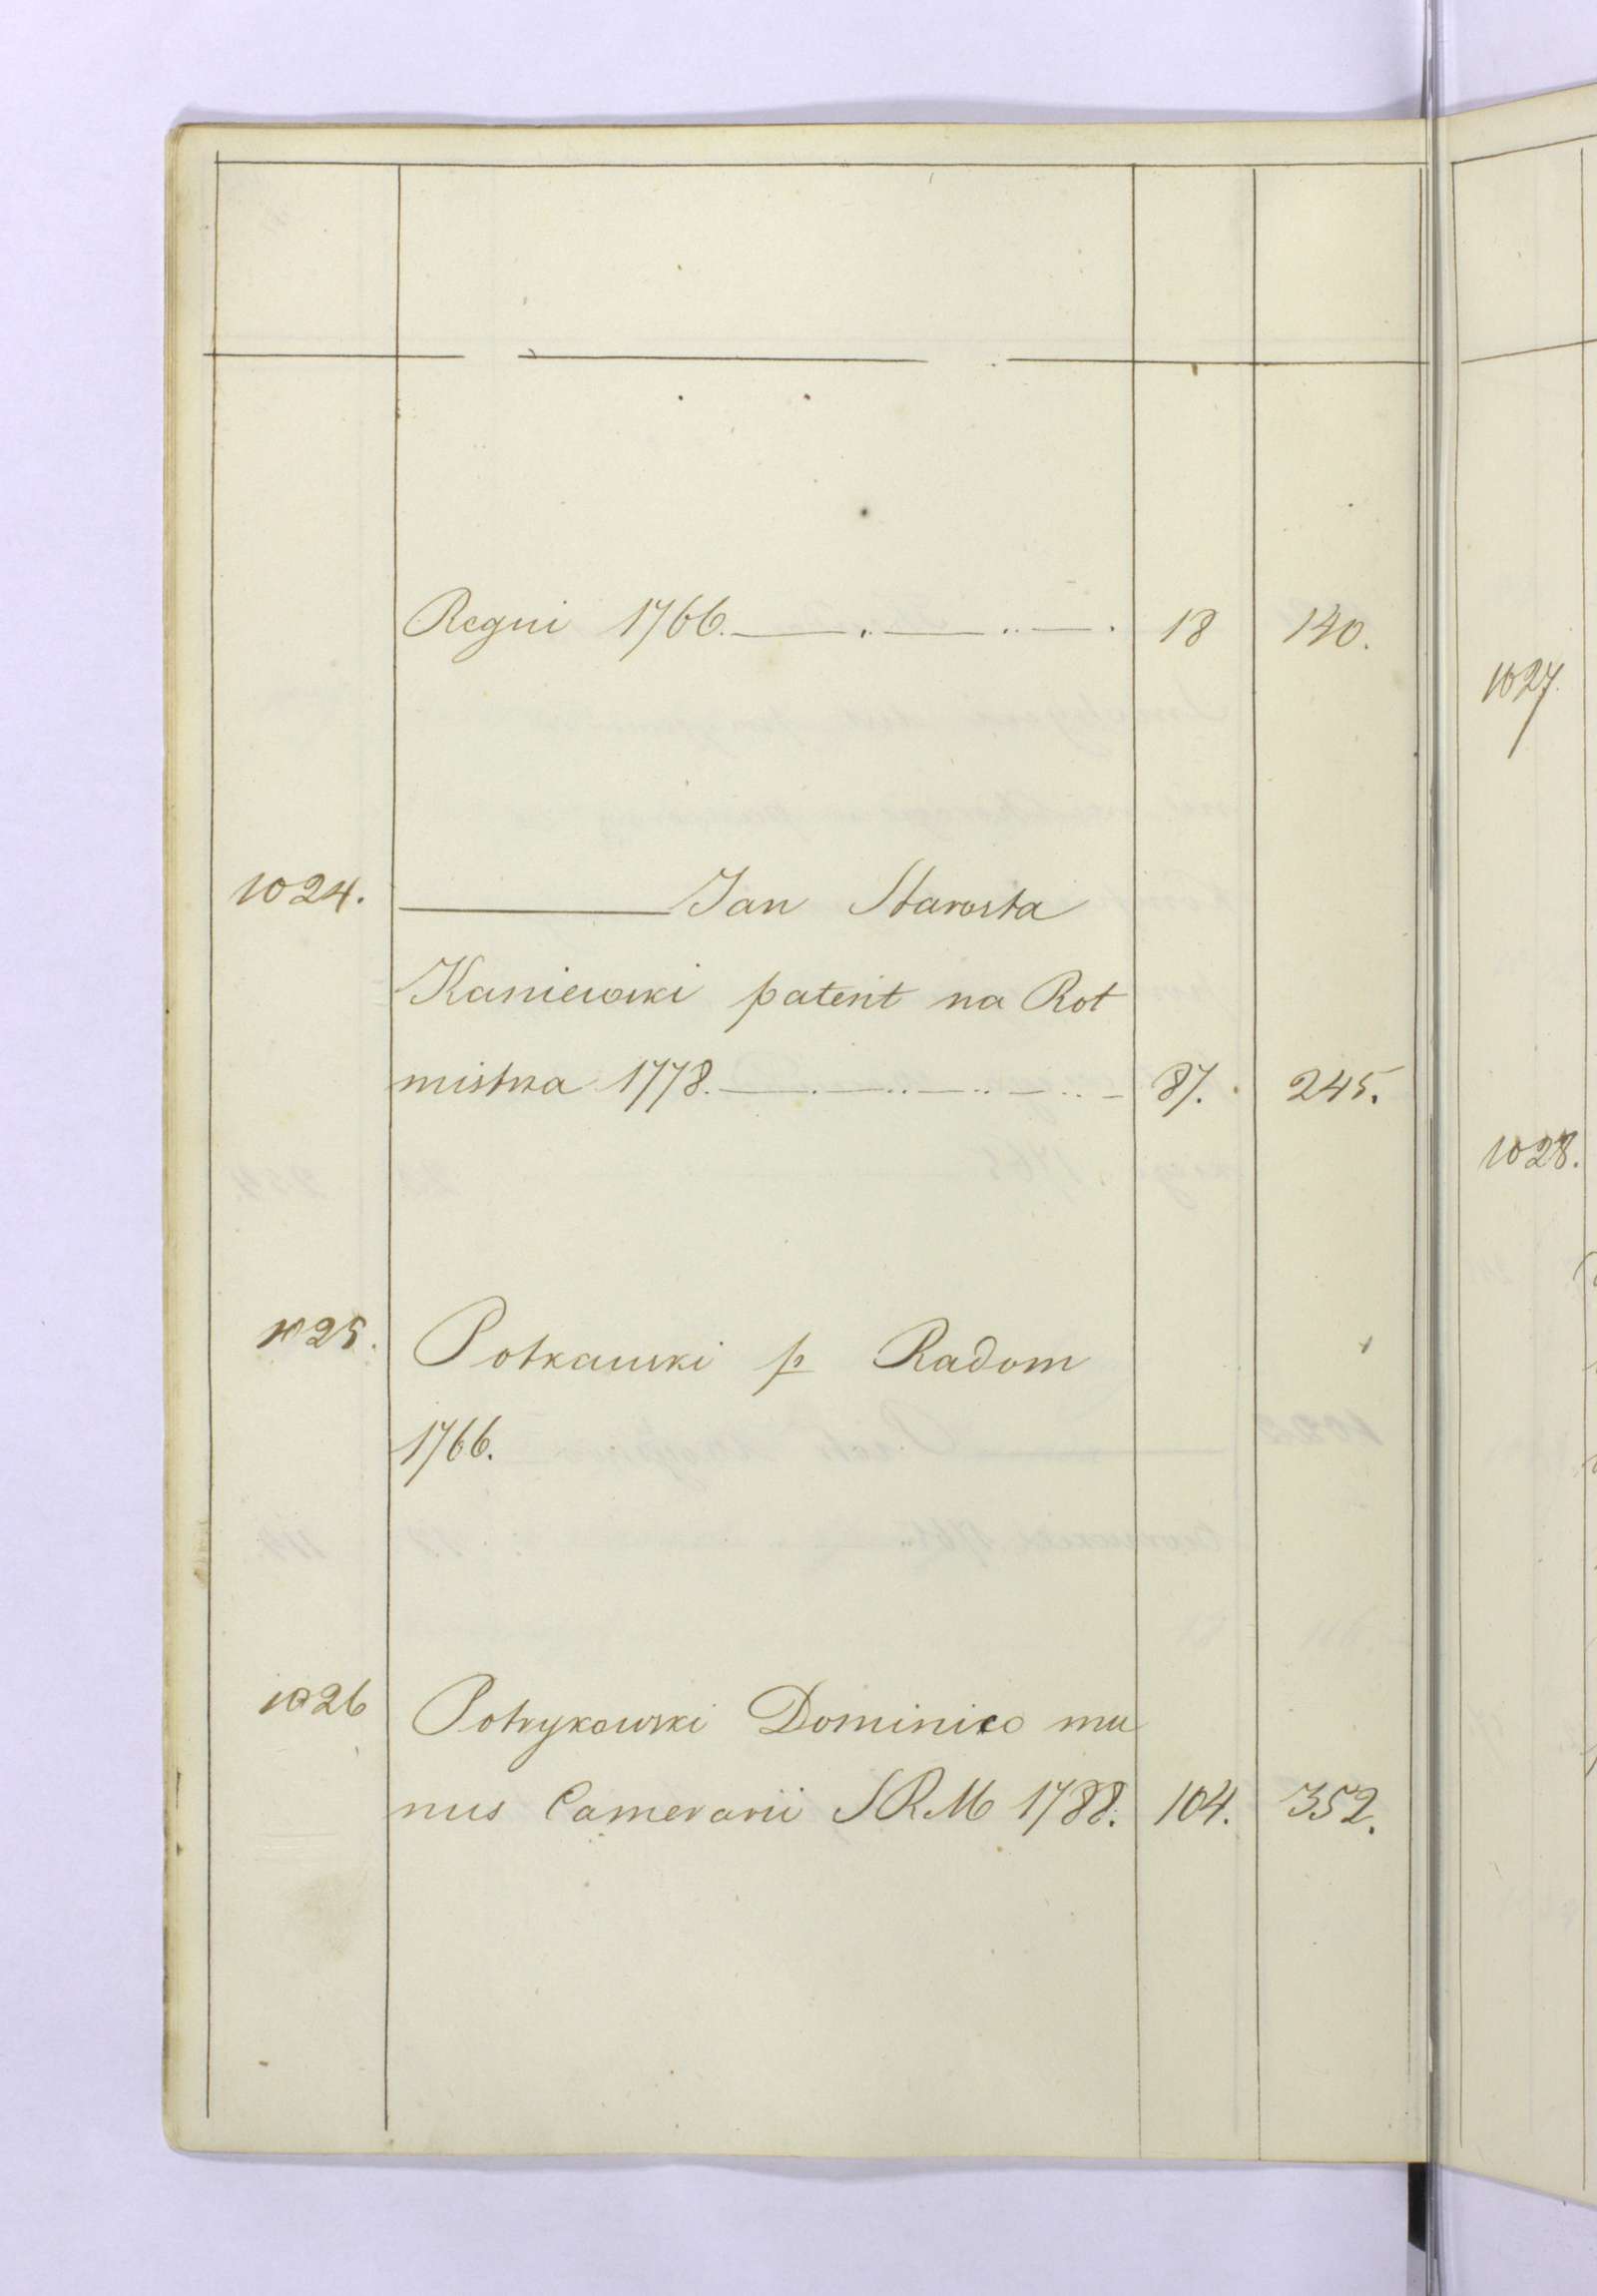 Regni 1766. 18 140.
1024. Jan Starosta
Kaniewski patent na Rot
mistrza 1778. 87. 245.
1025. Potkawski p Radom
1766.
1026 Potrykowski Dominico mu
nus Camerarii SRM 1788. 104. 352.
1027.
1028.